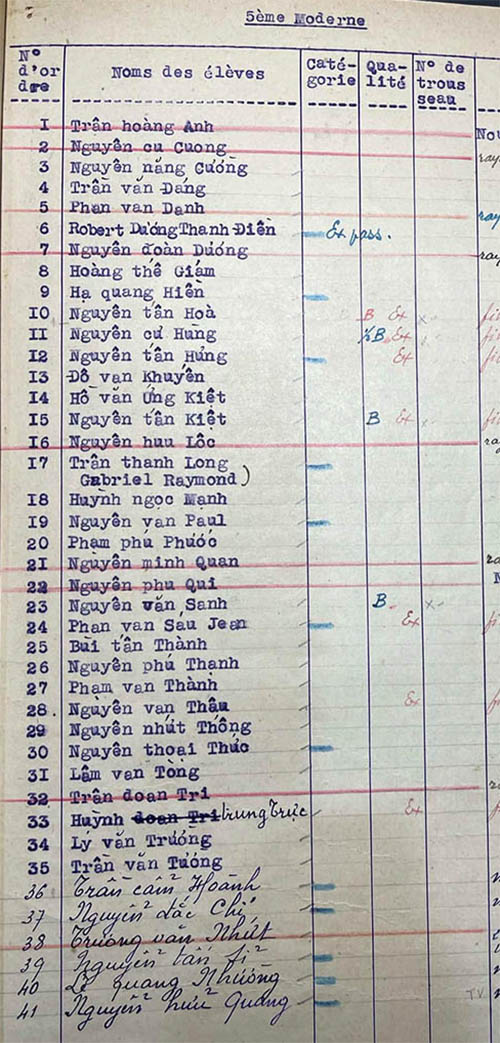 5ème Moderne
N° d'or dre Noms des élèves Caté- gorie Qua- lité N° de trous seau
1 Trân hoàng Anh
2 Nguyên cu Cuong
3 Nguyên năng Cường
4 Trần văn Đáng
5 Phan van Danh
6 Robert Dương Thanh Điền Ex pass.
7 Nguyên đoàn Dương
8 Hoàng thế Giám
9 Hạ quang Hiền
10 Nguyên tấn Hoà B Ex
11 Nguyên cư Hùng ½B Ex
12 Nguyên tấn Hưng Ex
13 Đỗ vạn Khuyên
14 Hồ văn Ứng Kiệt
15 Nguyên tấn Kiệt B Ex
16 Nguyên huu Lôc
17 Trân thanh Long
Gabriel Raymond)
18 Huỳnh ngọc Mạnh
19 Nguyên van Paul
20 Phạm phú Phước
21 Nguyên minh Quan
22 Nguyên phu Qui
23 Nguyên văn Sanh B
24 Phan van Sau Jean Ex
25 Bùi tấn Thành
26 Nguyên phú Thạnh
27 Phạm van Thành
28. Nguyên van Thâu Ex
29 Nguyên nhút Thông
30 Nguyên thoại Thức
31 Lâm van Tòng
32 Trân doan Tri
33 Huỳnh doan Tri trung Trực Ex
34 Lý văn Trường
35 Trần văn Tường
36 Trần cẩm Hoành
37 Nguyễn đắc Chí
38 Trương văn Nhứt
39 Nguyễn tấn
40 Lê quang Nhường
41 Nguyễn hữu Quang